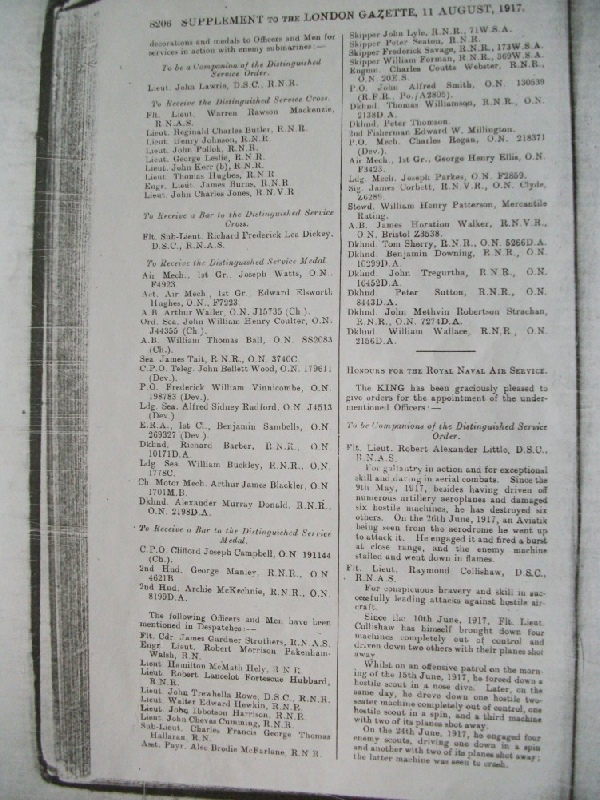 8206 SUPPLEMENT TO THE LONDON GAZETTE, 11 AUGUST, 1917.
decorations and medals to Officers and Men for
services in action with enemy submarines:—
To be a Companion of the Distinguished
Service Order.
Lieut. John Lawrie, D.S.C., R.N.R.
To Receive the Distinguished Service Cross.
Flt. Lieut. Warren Rawson Mackenzie,
R.N.A.S.
Lieut. Reginald Charles Butler, R.N.R.
Lieut. Henry Johnson, R.N.R.
Lieut. John Pollok, R.N.R.
Lieut. George Leslie, R.N.R.
Lieut. John Kerr (b), R.N.R.
Lieut. Thomas Hughes, R.N.R.
Engr. Lieut. James Burns, R.N.R.
Lieut. John Charles Jones, R.N.V.R.
To Receive a Bar to the Distinguished Service
Cross.
Flt. Sub-Lieut. Richard Frederick Lee Dickey,
D.S.C., R.N.A.S.
To Receive the Distinguished Service Medal.
Air Mech., 1st Gr., Joseph Watts, O.N.
F4923.
Act. Air Mech., 1st Gr., Edward Elsworth
Hughes, O.N., F7923.
A.B. Arthur Waller, O.N. J15735 (Ch.).
Ord. Sea. John William Henry Coulter, O.N.
J44355 (Ch.).
A.B. William Thomas Ball, O.N. SS2083
(Ch.).
Sea. James Tait, R.N.R., O.N. 3740C.
C.P.O. Teleg. John Bellett Wood, O.N. 179611
(Dev.).
P.O. Frederick William Vinnicombe, O.N.
198783 (Dev.).
Ldg. Sea. Alfred Sidney Rudford, O.N. J4513
(Dev.).
E.R.A., 1st C., Benjamin Sambells, O.N.
269327 (Dev.).
Dkhnd. Richard Barber, R.N.R., O.N.
10171D.A.
Ldg. Sea. William Buckley, R.N.R., O.N.
1778C.
Ch. Motor Mech. Arthur James Blackler, O.N.
1701M.B.
Dkhnd. Alexander Murray Donald, R.N.R.,
O.N. 2198D.A.
To Receive a Bar to the Distinguished Service
Medal.
C.P.O. Clifford Joseph Campbell, O.N. 191144
(Ch.).
2nd Hnd. George Manley, R.N.R., O.N.
4621B
2nd Hnd. Archie McKechnie, R.N.R., O.N.
8199D.A.
The following Officers and Men have been
mentioned in Despatches:—
Flt. Cdr. James Gardner Struthers, R.N.A.S.
Engr. Lieut. Robert Morrison Pakenham-
Walsh, R.N.
Lieut. Hamilton McMath Hely, R.N.R.
Lieut. Robert Lancelot Fortescue Hubbard,
R.N.R.
Lieut. John Trewhella Rowe, D.S.C., R.N.R.
Lieut. Walter Edward Hewkin, R.N.R.
Lieut. John Ibbotson Harrison, R.N.R.
Lieut. John Cheyas Cumming, R.N.R.
Sub-Lieut. Charles Francis George Thomas
Hallaran, R.N.
Asst. Payr. Alec Brodie McFarlane, R.N.R.
Skipper John Lyle, R.N.R., 71W.S.A.
Skipper Peter Seaton, R.N.R.
Skipper Frederick Savage, R.N.R., 173W.S.A.
Skipper William Forman, R.N.R., 369W.S.A.
Engmn. Charles Coutts Webster, R.N.R.,
O.N. 20E.S.
P.O. John Alfred Smith, O.N. 130539
(R.F.R., Po./A2805).
Dkhnd. Thomas Williamson, R.N.R., O.N.
2138D.A.
Dkhnd. Peter Thomson.
2nd Fisherman Edward W. Millington.
P.O. Mech. Charles Regan, O.N. 218371
(Dev.).
Air Mech., 1st Gr., George Henry Ellis, O.N.
F3423.
Ldg. Mech. Joseph Parkes, O.N. F2859.
Sig. James Corbett, R.N.V.R., O.N. Clyde,
Z6289.
Stewd. William Henry Patterson, Mercantile
Rating.
A.B. James Horation Walker, R.N.V.R.,
O.N. Bristol Z3538.
Dkhnd. Tom Sherry, R.N.R., O.N. 5266D.A.
Dkhnd. Benjamin Downing, R.N.R., O.N.
10299D.A.
Dkhnd. John Tregurtha, R.N.R., O.N.
10452D.A.
Dkhnd. Peter Sutton, R.N.R., O.N.
8443D.A.
Dkhnd. John Methvin Robertson Strachan,
R.N.R., O.N. 7274D.A.
Dkhnd. William Wallace, R.N.R., O.N.
2156D.A.
HONOURS FOR THE ROYAL NAVAL AIR SERVICE.
The KING has been graciously pleased to
give orders for the appointment of the under-
mentioned Officers:—
To be Companions of the Distinguished Service
Order.
Flt. Lieut. Robert Alexander Little, D.S.C.,
R.N.A.S.
For gallantry in action and for exceptional
skill and daring in aerial combats. Since the
9th May, 1917, besides having driven off
numerous artillery aeroplanes and damaged
six hostile machines, he has destroyed six
others. On the 26th June, 1917, an Aviatik
being seen from the aerodrome he went up
to attack it. He engaged it and fired a burst
at close range, and the enemy machine
stalled and went down in flames.
Flt. Lieut. Raymond Collishaw, D.S.C.,
R.N.A.S.
For conspicuous bravery and skill in suc-
cessfully leading attacks against hostile air-
craft.
Since the 10th June, 1917, Flt. Lieut.
Collishaw has himself brought down four
machines completely out of control and
driven down two others with their planes shot
away.
Whilst on an offensive patrol on the morn-
ing of the 15th June, 1917, he forced down a
hostile scout in a nose dive. Later, on the
same day, he drove down one hostile two-
seater machine completely out of control, one
hostile scout in a spin, and a third machine
with two of its planes shot away.
On the 24th June, 1917, he engaged four
enemy scouts, driving one down in a spin
and another with two of its planes shot away;
the latter machine was seen to crash.